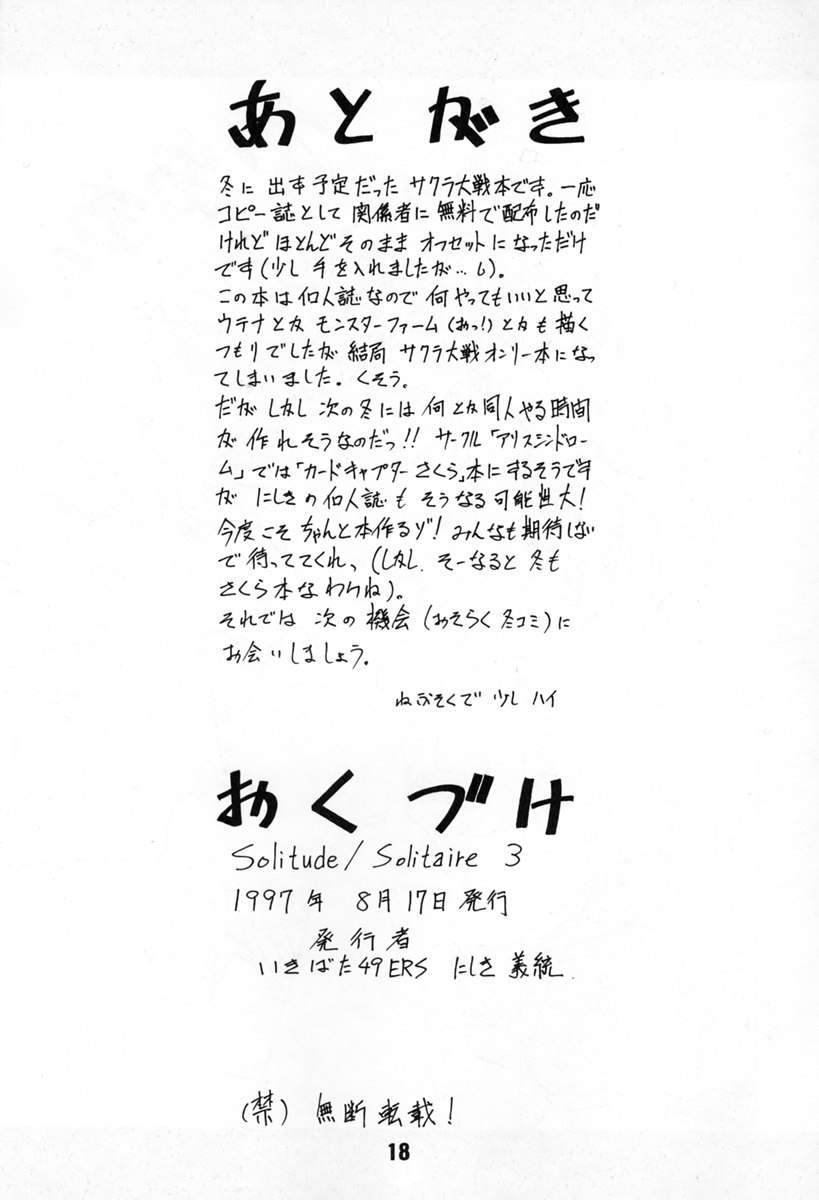 あとがき
冬に 出す予定だった サクラ大戦本です。一応
コピー誌として 関係者に 無料で配布したのだ
けれど ほとんどそのまま オフセットに なっただけ
です(少し 手を入れましたが…)。
この本は 個人誌なので 何やってもいいと思って
ウテナとか モンスターファーム(おっ!)とかも描く
つもりでしたが 結局 サクラ大戦オンリー本になっ
てしまいました。くそう。
だが しかし 次の冬には 何とか同人やる時間
が 作れそうなのだっ!! サークル「アリスシンドロー
ム」では「カードキャプター さくら」本にするそうです
が にしきの個人誌も そうなる可能性大!
今度こそ ちゃんと本作るゾ! みんなも期待しない
で 待っててくれ、(しかし、そーなると 冬も
さくら本なわけね)。
それでは 次の機会(おそらく冬コミ)に
お会いしましょう。
ねぶそくで 少し ハイ
おくづけ
Solitude/Solitaire 3
1997年 8月17日発行
発行者
いきばた49ERS にしき義統
(禁) 無断転載!
18